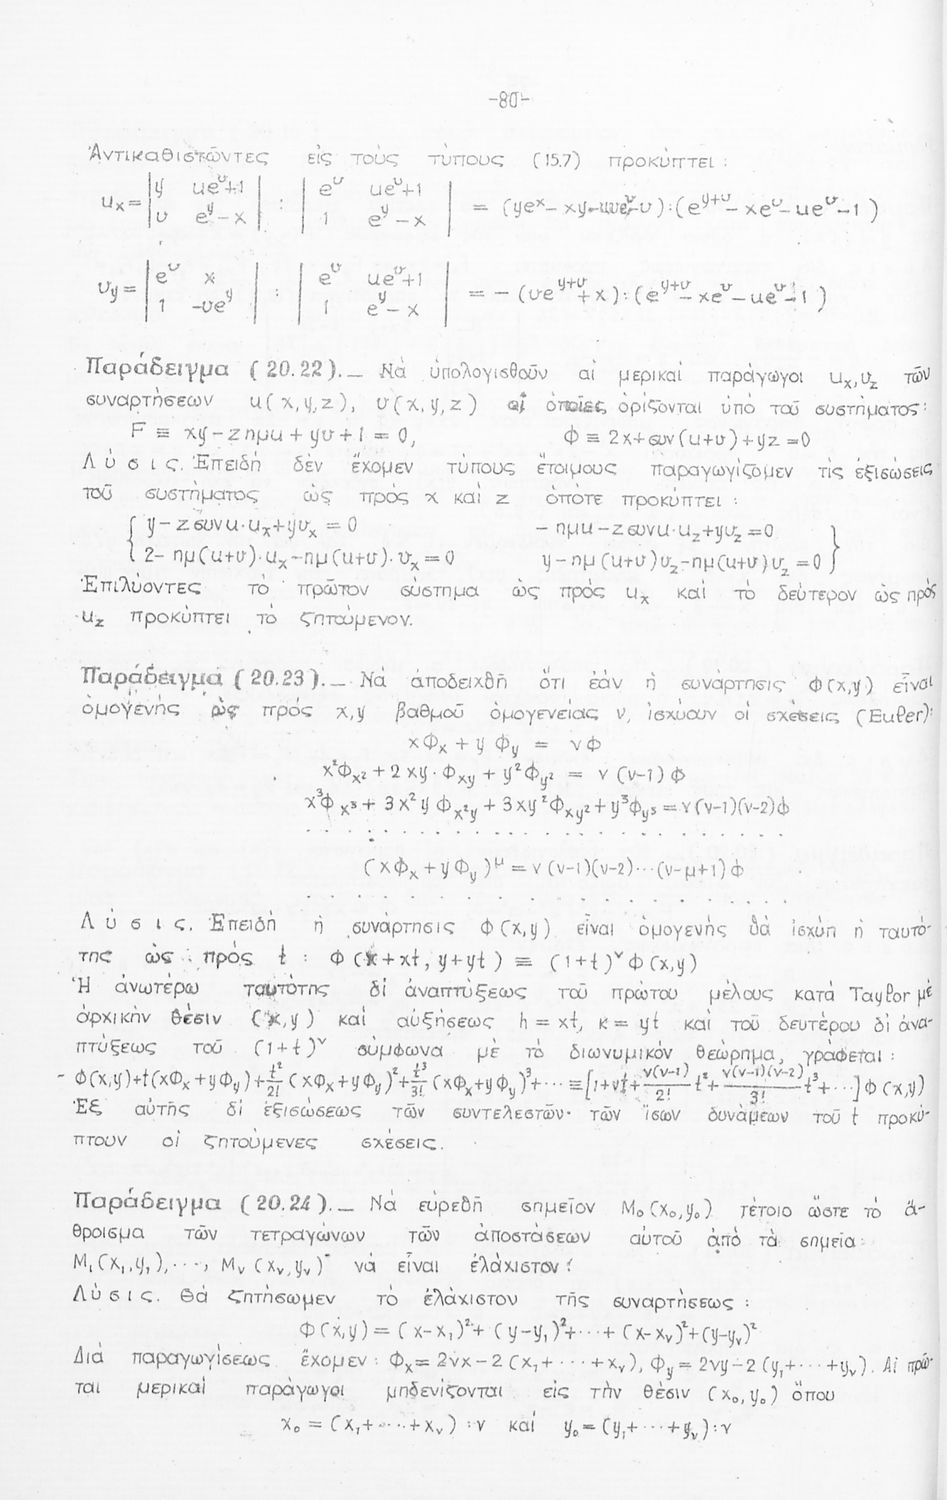 -80-
Ἀντικαθιστῶντες εἰς τοὺς τύπους (15.7) προκύπτει :
u_x = | y ue^υ+1 | υ e^y-x | : | e^υ ue^υ+1 | 1 e^y-x | = (ye^x - xy-uυe^υ-υ):(e^{y+υ} - xe^υ - ue^υ-1)
υ_y = | e^υ x | 1 -υe^y | : | e^υ ue^υ+1 | 1 e^y-x | = - (υe^{y+υ}+x):(e^{y+υ} - xe^υ - ue^υ-1)
Παράδειγμα (20.22)._ Νὰ ὑπολογισθοῦν αἱ μερικαὶ παράγωγοι u_x, υ_z τῶν
συναρτήσεων u(x,y,z), υ(x,y,z) αἱ ὁποῖες ὁρίζονται ὑπὸ τοῦ συστήματος:
F ≡ xy-zημu+yυ+1=0, Φ ≡ 2x+συν(u+υ)+yz=0
Λύσις. Ἐπειδὴ δὲν ἔχομεν τύπους ἕτοιμους παραγωγίζομεν τὶς ἐξισώσεις
τοῦ συστήματος ὡς πρὸς x καὶ z ὁπότε προκύπτει :
{ y-zσυνu·u_x+yυ_x = 0 -ημu-zσυνu·u_z+yυ_z=0 }
{ 2-ημ(u+υ)·u_x-ημ(u+υ)·υ_x=0 y-ημ(u+υ)υ_z-ημ(u+υ)υ_z=0 }
Ἐπιλύοντες τὸ πρῶτον σύστημα ὡς πρὸς u_x καὶ τὸ δεύτερον ὡς πρὸς
u_z προκύπτει τὸ ζητούμενον.
Παράδειγμα (20.23)._ Νὰ ἀποδειχθῆ ὅτι ἐὰν ἡ συνάρτησις Φ(x,y) εἶναι
ὁμογενὴς ὡς πρὸς x,y βαθμοῦ ὁμογενείας ν, ἰσχύουν οἱ σχέσεις (Euler):
xΦ_x + yΦ_y = νΦ
x²Φ_{x²} + 2xy·Φ_{xy} + y²Φ_{y²} = ν(ν-1)Φ
x³Φ_{x³} + 3x²yΦ_{x²y} + 3xy²Φ_{xy²} + y³Φ_{y³} = ν(ν-1)(ν-2)Φ
. . . . . . . . . . . . . . . . . . . . . . . . . .
(xΦ_x + yΦ_y)^μ = ν(ν-1)(ν-2)···(ν-μ+1)Φ
. . . . . . . . . . . . . . . . . . . . . . . . . .
Λύσις. Ἐπειδὴ ἡ συνάρτησις Φ(x,y) εἶναι ὁμογενὴς θὰ ἰσχύη ἡ ταυτό-
της ὡς πρὸς t : Φ(x+xt, y+yt) ≡ (1+t)^ν Φ(x,y)
Ἡ ἀνωτέρω ταυτότης δι' ἀναπτύξεως τοῦ πρώτου μέλους κατὰ Taylor μὲ
ἀρχικὴν θέσιν (x,y) καὶ αὐξήσεως h=xt, κ=yt καὶ τοῦ δευτέρου δι' ἀνα-
πτύξεως τοῦ (1+t)^ν σύμφωνα μὲ τὸ διωνυμικόν θεώρημα, γράφεται :
Φ(x,y)+t(xΦ_x+yΦ_y)+t²/2!(xΦ_x+yΦ_y)²+t³/3!(xΦ_x+yΦ_y)³+··· ≡[1+νt+ν(ν-1)/2! t²+ν(ν-1)(ν-2)/3! t³+···]Φ(x,y)
Ἐξ αὐτῆς δι' ἐξισώσεως τῶν συντελεστῶν τῶν ἴσων δυνάμεων τοῦ t προκύ-
πτουν οἱ ζητούμενες σχέσεις.
Παράδειγμα (20.24)._ Νὰ εὑρεθῆ σημεῖον M₀(x₀,y₀) τέτοιο ὥστε τὸ ἄ-
θροισμα τῶν τετραγώνων τῶν ἀποστάσεων αὐτοῦ ἀπὸ τὰ σημεῖα
M₁(x₁,y₁),···, M_ν(x_ν,y_ν) νὰ εἶναι ἐλάχιστον!
Λύσις. Θὰ ζητήσωμεν τὸ ἐλάχιστον τῆς συναρτήσεως :
Φ(x,y) = (x-x₁)²+(y-y₁)²+···+(x-x_ν)²+(y-y_ν)²
Διὰ παραγωγίσεως ἔχομεν : Φ_x = 2νx-2(x₁+···+x_ν), Φ_y = 2νy-2(y₁+···+y_ν). Αἱ πρῶ-
ται μερικαὶ παράγωγοι μηδενίζονται εἰς τὴν θέσιν (x₀,y₀) ὅπου
x₀ = (x₁+···+x_ν):ν καὶ y₀=(y₁+···+y_ν):ν